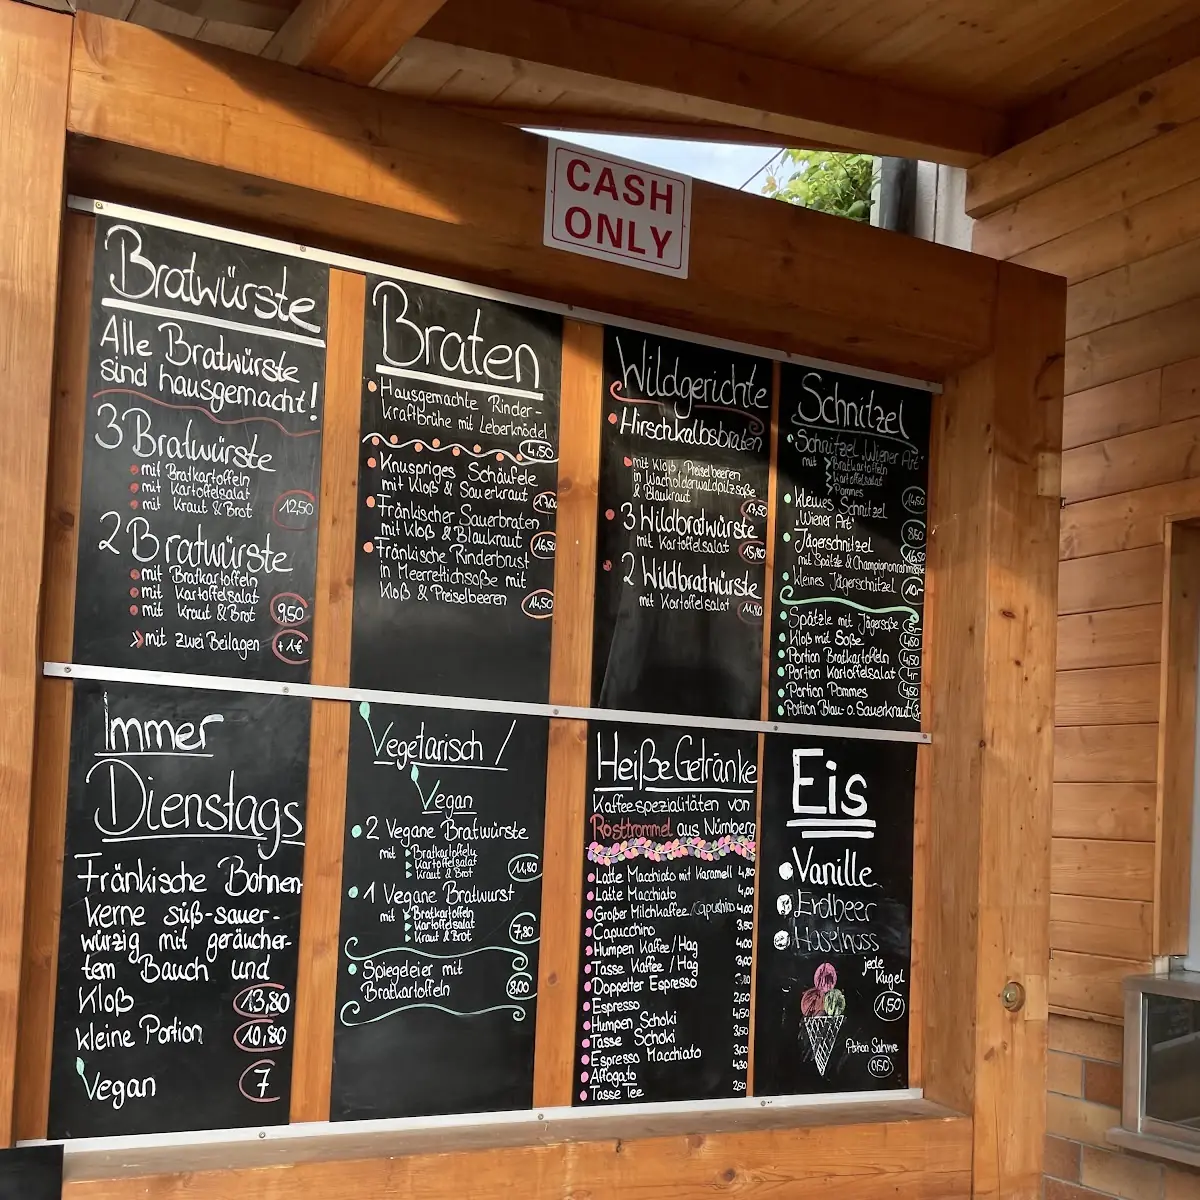 CASH
ONLY
Bratwürste
Alle Bratwürste
sind hausgemacht!
3 Bratwürste
mit Bratkartoffeln
mit Kartoffelsalat
mit Kraut & Brot
12,50
2 Bratwürste
mit Bratkartoffeln
mit Kartoffelsalat
mit Kraut & Brot
9,50
mit zwei Beilagen +1€
Braten
Hausgemachte Rinder-
kraftbrühe mit Leberknödel
4,50
Knuspriges Schäufele
mit Kloß & Sauerkraut
Fränkischer Sauerbraten
mit Kloß & Blaukraut 16,50
Fränkische Rinderbrust
in Meerrettichsoße mit
Kloß & Preiselbeeren 14,50
Wildgerichte
Hirschkalbsbraten
mit Kloß, Preiselbeeren
in Wacholderwaldpilzsoße
& Blaukraut
3 Wildbratwürste
mit Kartoffelsalat 15,80
2 Wildbratwürste
mit Kartoffelsalat 11,80
Schnitzel
Schnitzel „Wiener Art"
mit Bratkartoffeln
Kartoffelsalat
Pommes 14,50
kleines Schnitzel
„Wiener Art" 8,50
Jägerschnitzel 16,50
mit Spätzle & Champignonrahmsoße
kleines Jägerschnitzel 10,-
Spätzle mit Jägersoße 5,-
Kloß mit Soße 4,50
Portion Bratkartoffeln 4,50
Portion Kartoffelsalat 4,-
Portion Pommes 4,50
Portion Blau- o. Sauerkraut 3,-
Immer
Dienstags
Fränkische Bohnen
kerne süß-sauer-
würzig mit geräucher-
tem Bauch und
Kloß 13,80
kleine Portion 10,80
Vegan 7
Vegetarisch /
Vegan
2 Vegane Bratwürste
mit Bratkartoffeln
Kartoffelsalat
Kraut & Brot
11,80
1 Vegane Bratwurst
mit Bratkartoffeln
Kartoffelsalat
Kraut & Brot
7,80
Spiegeleier mit
Bratkartoffeln 8,00
Heiße Getränke
Kaffeespezialitäten von
Rösttrommel aus Nürnberg
Latte Macchiato mit Karamell 4,80
Latte Macchiato 4,00
Großer Milchkaffee 4,00
Capucchino 3,50
Humpen Kaffee / Hag 4,00
Tasse Kaffee / Hag 3,00
Doppelter Espresso
Espresso 2,50
Humpen Schoki 4,50
Tasse Schoki 3,50
Espresso Macchiato 3,00
Affogato 4,30
Tasse Tee 2,50
Eis
Vanille
Erdbeer
Haselnuss
jede
Kugel
1,50
Portion Sahne
0,50